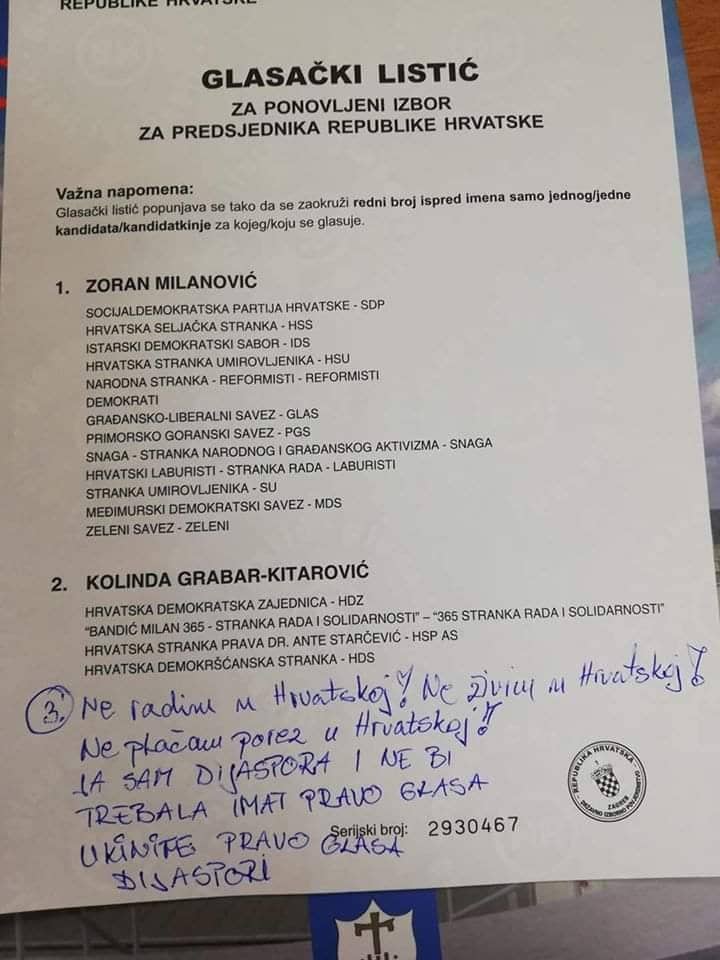 REPUBLIKE HRVATSKE
GLASAČKI LISTIĆ
ZA PONOVLJENI IZBOR
ZA PREDSJEDNIKA REPUBLIKE HRVATSKE
Važna napomena:
Glasački listić popunjava se tako da se zaokruži redni broj ispred imena samo jednog/jedne
kandidata/kandidatkinje za kojeg/koju se glasuje.
1. ZORAN MILANOVIĆ
SOCIJALDEMOKRATSKA PARTIJA HRVATSKE - SDP
HRVATSKA SELJAČKA STRANKA - HSS
ISTARSKI DEMOKRATSKI SABOR - IDS
HRVATSKA STRANKA UMIROVLJENIKA - HSU
NARODNA STRANKA - REFORMISTI - REFORMISTI
DEMOKRATI
GRAĐANSKO-LIBERALNI SAVEZ - GLAS
PRIMORSKO GORANSKI SAVEZ - PGS
SNAGA - STRANKA NARODNOG I GRAĐANSKOG AKTIVIZMA - SNAGA
HRVATSKI LABURISTI - STRANKA RADA - LABURISTI
STRANKA UMIROVLJENIKA - SU
MEĐIMURSKI DEMOKRATSKI SAVEZ - MDS
ZELENI SAVEZ - ZELENI
2. KOLINDA GRABAR-KITAROVIĆ
HRVATSKA DEMOKRATSKA ZAJEDNICA - HDZ
"BANDIĆ MILAN 365 - STRANKA RADA I SOLIDARNOSTI" – "365 STRANKA RADA I SOLIDARNOSTI"
HRVATSKA STRANKA PRAVA DR. ANTE STARČEVIĆ - HSP AS
HRVATSKA DEMOKRŠĆANSKA STRANKA - HDS
3. Ne radim u Hrvatskoj! Ne živim u Hrvatskoj!
Ne plaćam porez u Hrvatskoj!!
JA SAM DIJASPORA I NE BI
TREBALA IMAT PRAVO GLASA
UKINITE PRAVO GLASA
DIJASPORI
Serijski broj: 2930467
REPUBLIKA HRVATSKA
ZAGREB
DRŽAVNO IZBORNO POVJERENSTVO